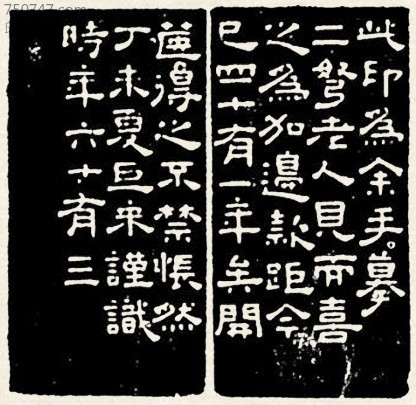 此印為余手摹
二弩老人見而喜
之為加邊款距今
已四十有一年矣開
篋得之不禁悵然
丁未夏巨來謹識
時年六十有三
750747.com